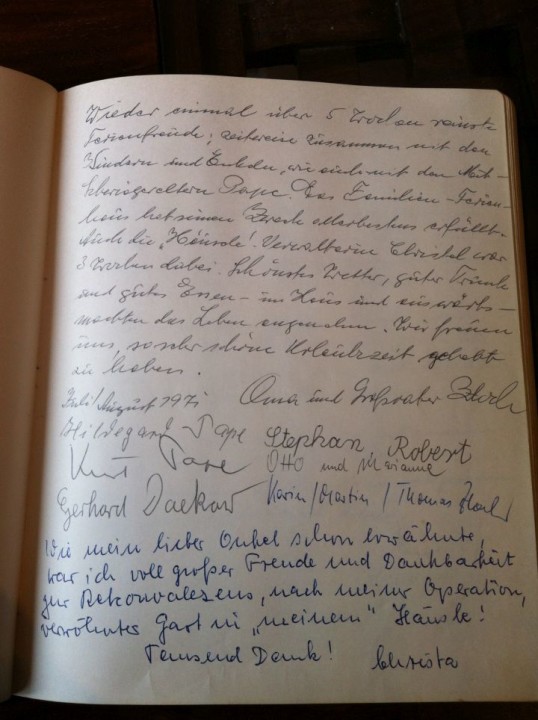 Wieder einmal über 5 Wochen reinste
Ferienfreude; zeitweise zusammen mit den
Kindern und Enkeln, wie auch mit den Mit-
Schwiegereltern Pape. Das Familien-Ferien-
haus hat seinen Zweck allerbestens erfüllt.
Auch die "Häusle"-Verwalterin Christel war
3 Wochen dabei. Schönstes Wetter, guter Trunk
und gutes Essen - im Haus und auswärts -
machten das Leben angenehm. Wir freuen
uns, so sehr schöne Urlaubszeit gehabt
zu haben.
Juli/August 1971 Oma und Großvater
Hildegard Pape Stephan Robert
Kurt Pape Otto und Marianne
Gerhard Daekow Karin/Martin/Thomas
Wie mein lieber Onkel schon erwähnte,
war ich voll großer Freude und Dankbarkeit
zur Rekonvaleszens, nach meiner Operation,
verwöhnter Gast in "meinem" Häusle!
Tausend Dank! Christa